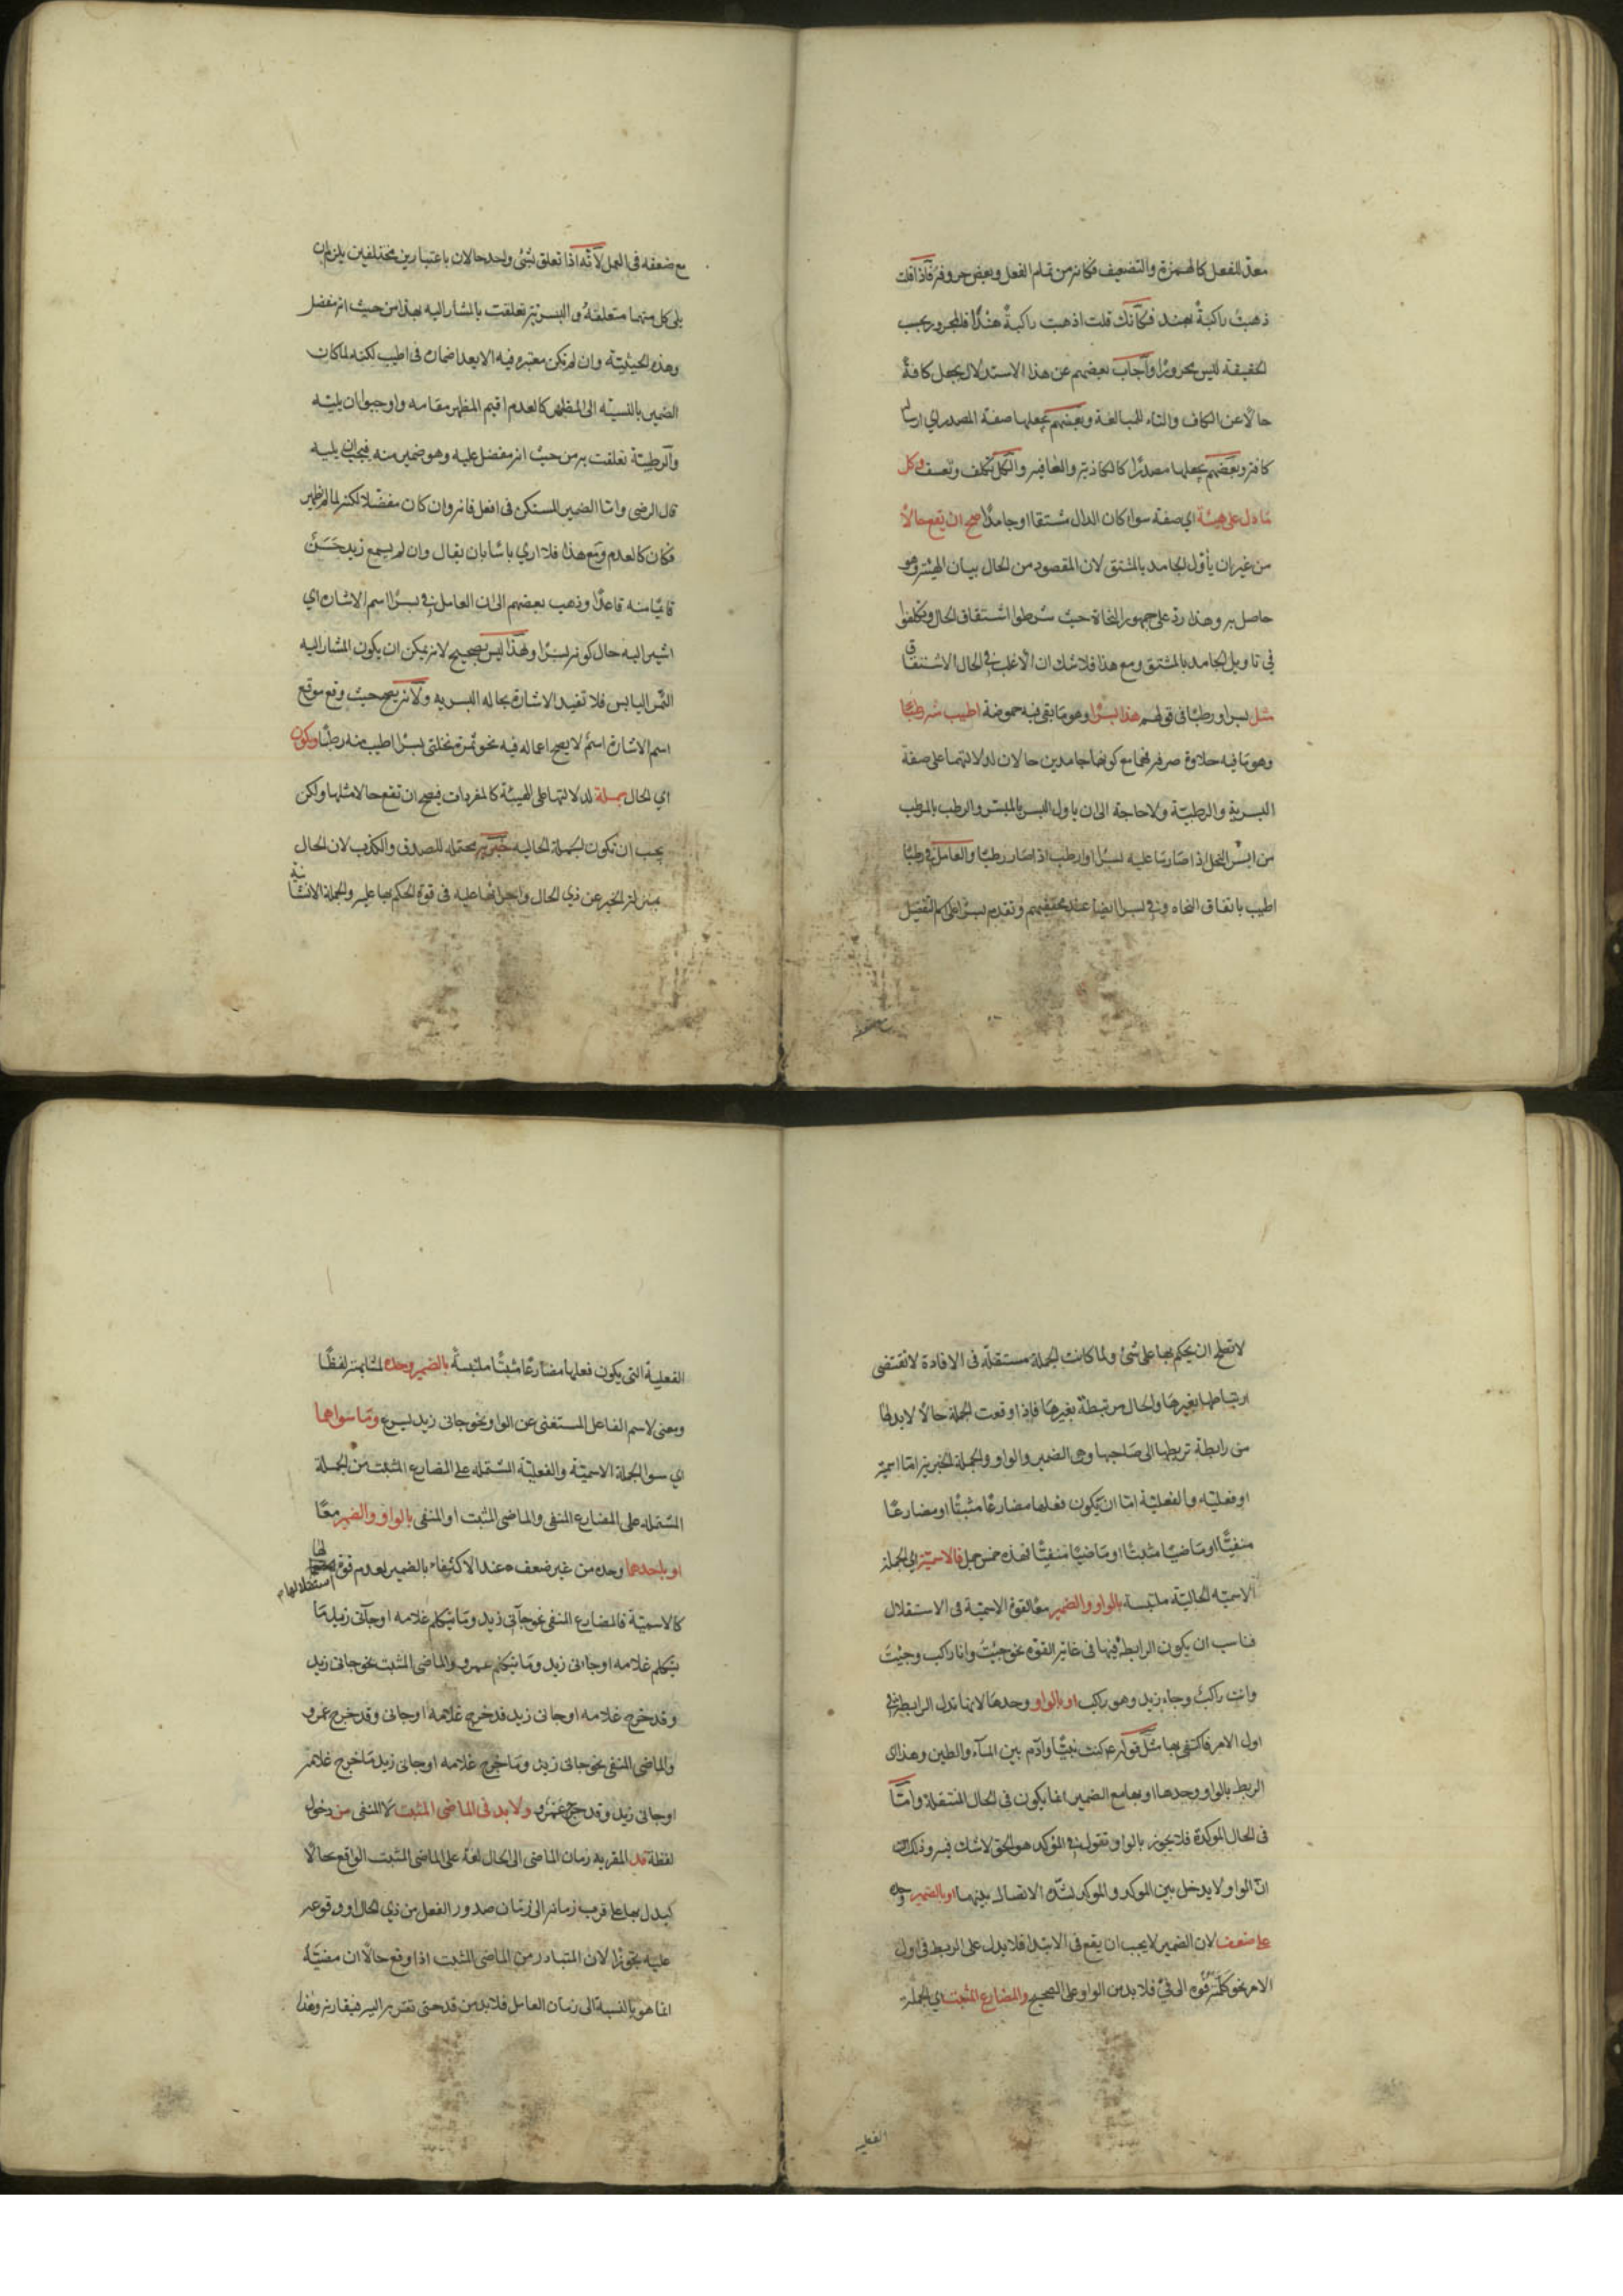 معدّ للفعل كالهمزة والتضعيف فكانه من تمام الفعل وبعض حروفه فاذا قلت
ذهبتُ راكبةً بهند فكأنّك قلت اذهبت راكبةً هندًا فالمجرور بحسب
الحقيقة ليس مجرورًا وأجاب بعضهم عن هذا الاستدلال بجعل كافةً
حالًا عن الكاف والتاء للمبالغة وبعضهم بجعلها صفة المصدر اي ارسالة
كافة وبعضهم بجعلها مصدرًا كالكاذبة والعافية والكل تكلف وتعسف وكل
ما دل على هيئة اي صفة سوا كان الدال مشتقا او جامدًا صح ان يقع حالًا
من غير ان يأوّل الجامد بالمشتق لان المقصود من الحال بيان الهيئة وهو
حاصل به وهذا رد على جمهور النحاة حيث شرطوا اشتقاق الحال وتكلفوا
في تاويل الجامد بالمشتق ومع هذا فلا شك ان الاغلب في الحال الاشتقاق
مثل بسرا ورطبًا في قولهم هذا بسرًا وهو ما بقي فيه حموضة اطيب منه رطبًا
وهو ما فيه حلاوة صرفة فهما مع كونهما جامدين حالان لدلالتهما على صفة
البسرية والرطبية ولا حاجة الى ان ياول البسر بالمبسر والرطب بالمرطب
من ابسر النخل اذا صار ما عليه بسرًا وارطب اذا صار رطبًا والعامل في رطبًا
اطيب باتفاق النحاه وفي بسرا ايضا عند محققيهم وتقدم بسرًا على اسم التفضيل
مع ضعفه في العمل لأنّه اذا تعلق بشئ واحد حالان باعتبارين مختلفين يلزم ان
يلى كل منهما متعلقهُ والبسرية تعلقت بالمشار اليه بهذا من حيث انه مفضل
وهذه الحيثية وان لم تكن معتبره فيه الا بعد اضماره في اطيب لكنه لما كان
الضمير بالنسبة الى المظهر كالعدم اقيم المظهر مقامه واوجبوا ان يليه
والرطبية تعلقت به من حيث انه مفضل عليه وهو ضمير منه فيجب ان يليه
قال الرضى واما الضمير المستكن في افعل فانه وان كان مفضلا لكنه لما لم يظهر
فكان كالعدم ومع هذا فلا ارى باسًا بان يقال وان لم يسمع زيد حَسَنٌ
قائمًا منه قاعدًا وذهب بعضهم الى ان العامل في بسرًا اسم الاشارة اي
اشير اليه حال كونه بسرًا وهذا ليس بصحيح لانه يمكن ان يكون المشار اليه
التمر اليابس فلا تفيد الاشارة بحاله البسريه ولانه يصح حيث وقع موقع
اسم الاشارة اسمٌ لا يصح اعماله فيه نحو تمرة نخلتي بسرًا اطيب منه رطبًا ويكون
اي الحال جملة لدلالتها على الهيئة كالمفردات فيصح ان تقع حالا مثلها ولكن
يجب ان تكون الجملة الحاليه خبرية محتمله للصدق والكذب لان الحال
بمنزلة الخبر عن ذي الحال واجراؤها عليه في قوة الحكم بها عليه والجملة الانشائية
لا تصلح ان يحكم بها على شئ ولما كانت الجملة مستقلة في الافادة لا تقتضى
ارتباطها بغيرها والحال مرتبطة بغيرها فاذا وقعت الجملة حالًا لا بد لها
من رابطة تربطها الى صاحبها وهى الضمير والواو والجملة الخبرية اما اسمية
او فعلية والفعلية اما ان يكون فعلها مضارعًا مثبتًا او مضارعًا
منفيًّا او ماضيًا مثبتًا او ماضيًا منفيًّا فهذه خمس جمل فالاسمية اي الجملة
الاسمية الحالية ملتبسة بالواو والضمير معًا لقوة الاسمية في الاستقلال
فناسب ان يكون الرابطة فيها في غاية القوه نحو جئتُ وانا راكب وجئتَ
وانت راكبٌ وجاء زيد وهو راكب او بالواو وحدها لانها تدل الرابطة في
اول الامر فاكتفى بها مثل قوله ع م كنت نبيًّا وآدم بين الماء والطين وهذا اى
الربط بالواو وحدها او بها مع الضمير انما يكون في الحال المنتقلة وامّا
في الحال الموكدة فلا يجوز بالواو تقول في الموكد هو الحق لا شك فيه وذلك
ان الواو لا يدخل بين الموكد والموكد لشدّة الاتصال بينهما او بالضمير وحده
على ضعف لان الضمير لا يجب ان يقع في الابتدا فلا يدل على الربط في اول
الامر نحو كلّمته فُوهُ الى فيّ فلا بد من الواو على الصحيح والمضارع المثبت اي الجملة
الفعليه
الفعلية التي يكون فعلها مضارعًا مثبتًا ملتبسةٌ بالضمير وحده لمشابهته لفظًا
ومعنى لاسم الفاعل المستغنى عن الواو نحو جانى زيد يسرع وما سواهما
اي سوا الجملة الاسميّة والفعليّة المشتمله على المضارع المثبت من الجملة
المشتملة على المضارع المنفى والماضى المثبت او المنفى بالواو والضمير معًا
او باحدهما وحده من غير ضعف عند الاكتفاء بالضمير لعدم قوة لها
استقلالها
كالاسميّة فالمضارع المنفى نحو جآنى زيد وما يتكلم غلامه او جآنى زيد ما
يتكلم غلامه او جاانى زيد وما يتكلم عمرو والماضى المثبت نحو جانى زيد
وقد خرج غلامه او جانى زيد قد خرج غلامه او جانى وقد خرج عمرو
والماضى المنفى نحو جانى زيد وما خرج غلامه او جانى زيد ما خرج غلامه
او جانى زيد وقد خرج عمرو ولا بد في الماضى المثبت لا المنفى من دخول
لفظة قد المقربة زمان الماضى الى الحال لغة على الماضى المثبت الواقع حالًا
ليدل بها على قرب زمانه الى زمان صدور الفعل من ذي الحال او وقوعه
عليه تجوزًا لان المتبادر من الماضى المثبت اذا وقع حالًا ان مضيّه
انما هو بالنسبة الى زمان العامل فلا بد من قد حتى تقربه اليه فيقارنه وهذا